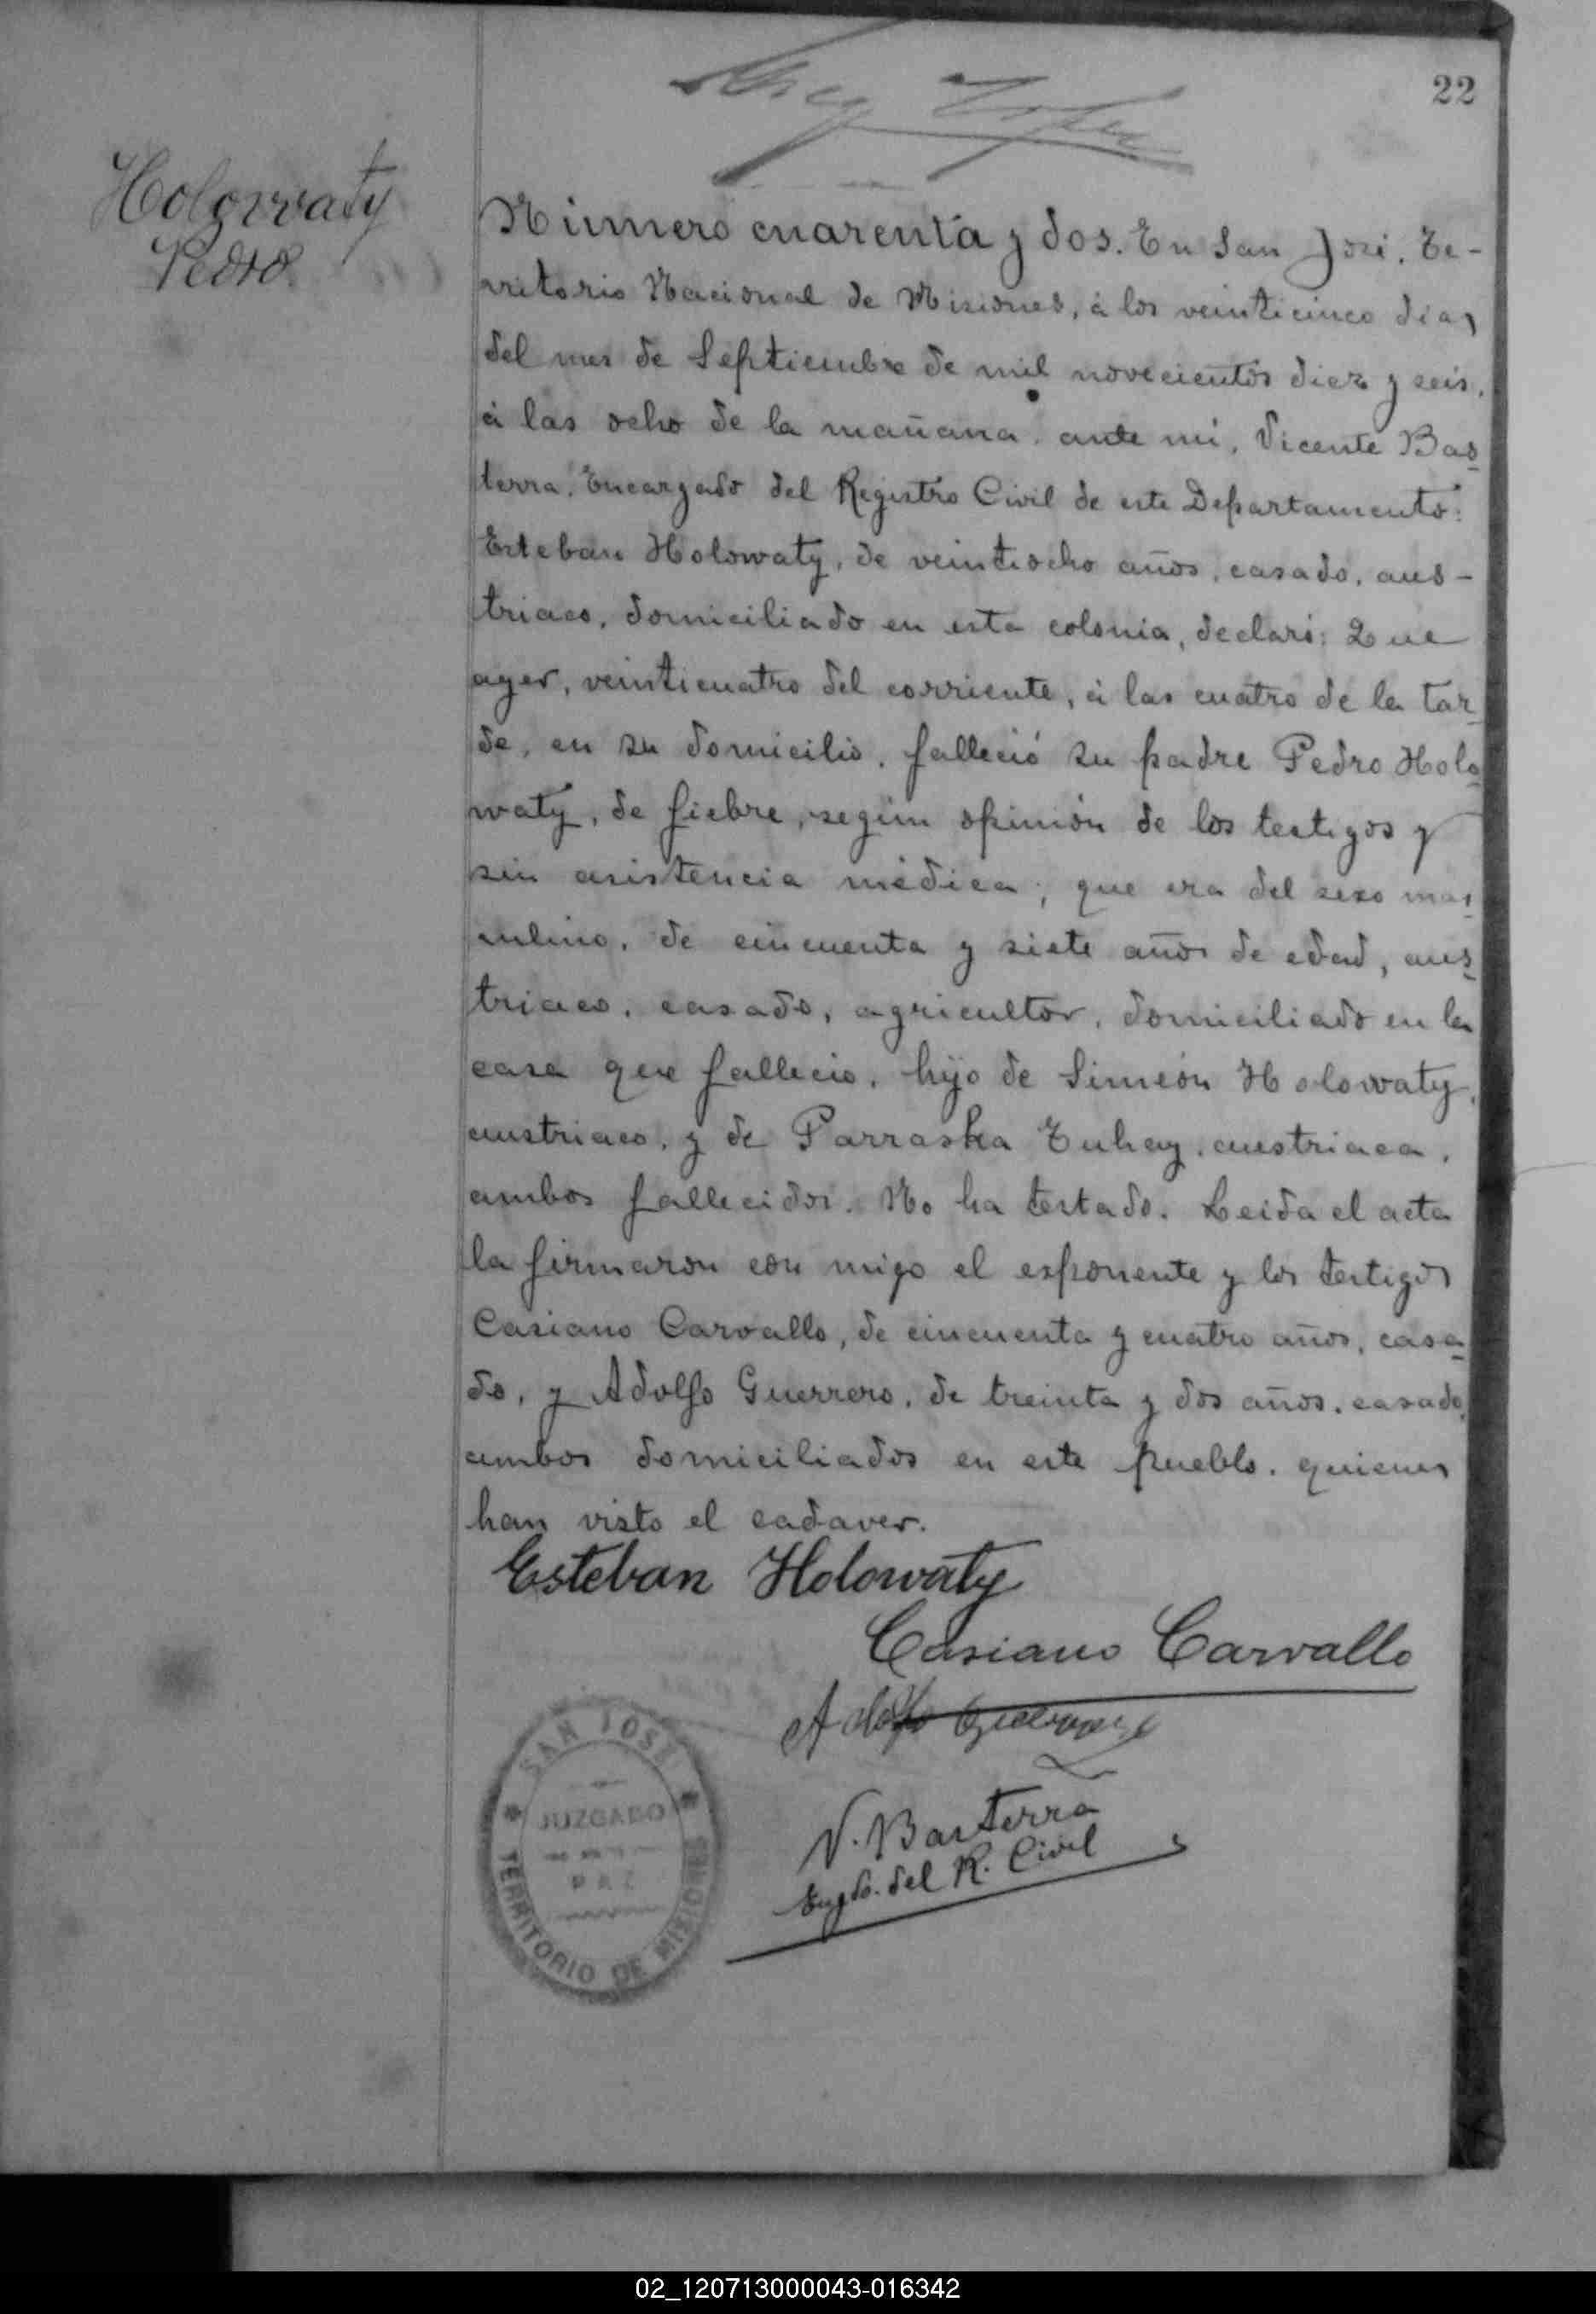 22
Holowaty
Pedro
Número cuarenta y dos. En San José, Te-
rritorio Nacional de Misiones, á los veinticinco dias
del mes de Septiembre de mil novecientos diez y seis,
á las ocho de la mañana, ante mí, Vicente Bas
terra, Encargado del Registro Civil de este Departamento:
Esteban Holowaty, de veintiocho años, casado, aus-
triaco, domiciliado en esta colonia, declaró: Que
ayer, veinticuatro del corriente, á las cuatro de la tar
de, en su domicilio, falleció su padre Pedro Holo
waty, de fiebre, según opinión de los testigos y
sin asistencia médica; que era del sexo mas
culino, de cincuenta y siete años de edad, aus
triaco, casado, agricultor, domiciliado en la
casa que falleció, hijo de Simeón Holowaty,
austriaco, y de Parraska Tuhay, austriaca,
ambos fallecidos. No ha testado. Leida el acta
la firmaron con migo el exponente y los testigos
Casiano Carvallo, de cincuenta y cuatro años, casa
do, y Adolfo Guerrero, de treinta y dos años, casado,
ambos domiciliados en este pueblo, quienes
han visto el cadaver.
Esteban Holowaty
Casiano Carvallo
Adolfo Guerrero
V. Basterra
Engdo. del R. Civil
SAN JOSÉ
JUZGADO
PAZ
TERRITORIO DE MISIONES
02_120713000043-016342